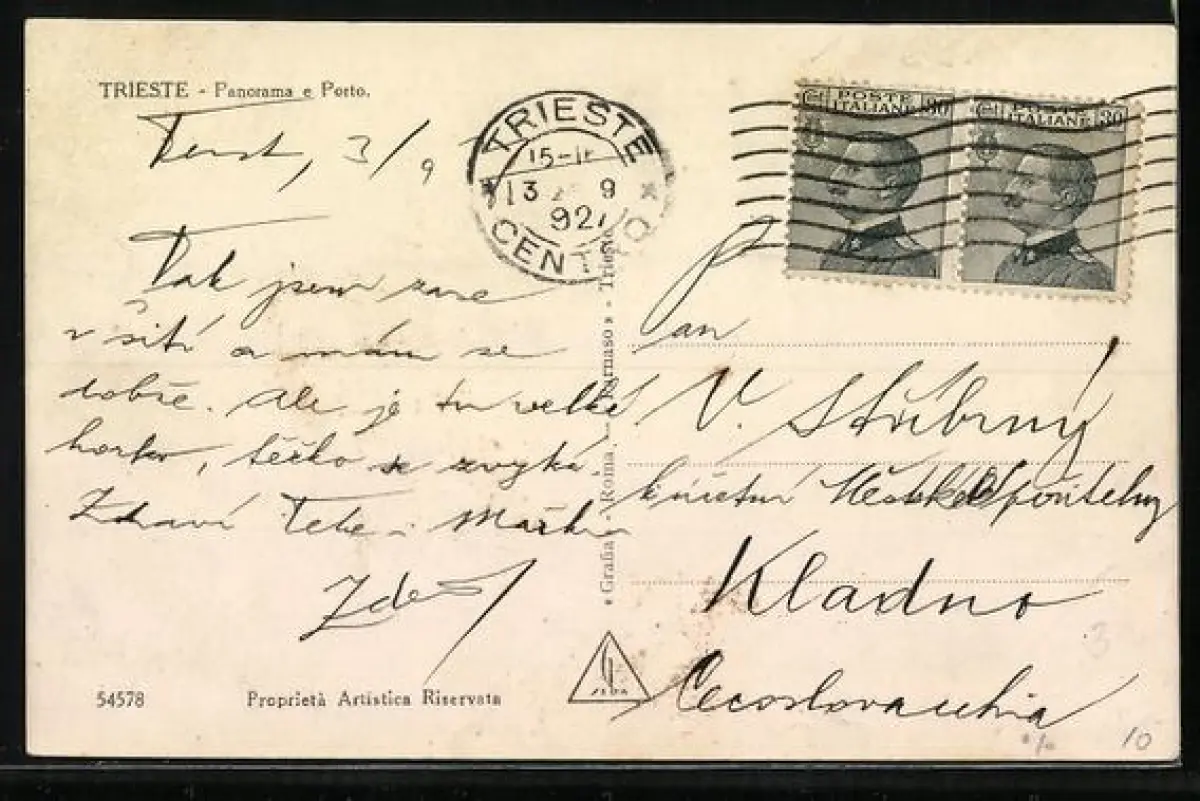 TRIESTE - Panorama e Porto.
Terst, 3/9
Tak jsem zase
v šití a mám se
dobře. Ale je tu velké
horko, těžko se zvyká
Zdraví Tebe i
Zden
TRIESTE
15-
13 9
927
CENTRO
Cmi POSTE ITALIANE 30
Cmi POSTE ITALIANE 30
Pan
V. Stříbrný
Městské spořitelny
Kladno
Cecoslovacchia
• Grafia • Roma. — « Parnaso » - Trieste
SEDA
54578
Proprietà Artistica Riservata
3
10